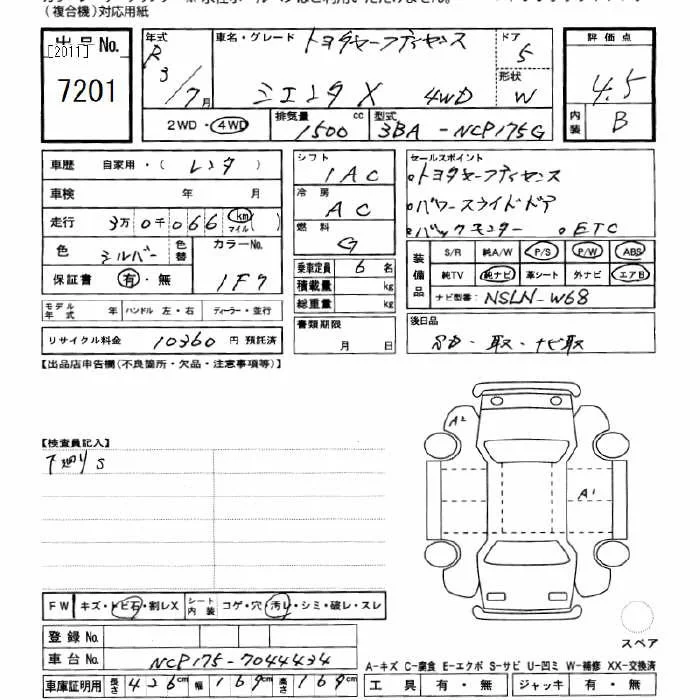 (複合機)対応用紙
出品 No.
[2011]
7201
年式 R 3/7 月
車名・グレード トヨタセーフティセンス
シエンタ X 4WD
ドア 5
形状 W
2WD・4WD
排気量 1500 cc
型式 3BA-NCP175G
評価点 4.5
内装 B
車歴 自家用・( レンタ )
車検 年 月
走行 3万0千066 km マイル ( )
色 シルバー 色替 カラーNo. 1F7
保証書 有・無
モデル年式 年 ハンドル 左・右 ディーラー・並行
リサイクル料金 10360 円 預託済
シフト IAC
冷房 AC
燃料 G
乗車定員 6 名
積載量 kg
総重量 kg
書類期限
月 日
セールスポイント
・トヨタセーフティセンス
・パワースライドドア
・バックモニター ・ETC
装備品 S/R 純A/W P/S P/W ABS
純TV 純ナビ 革シート 外ナビ エアB
ナビ型番: NSLN-W68
後日品
・取・ナビ取
【出品店申告欄(不良箇所・欠品・注意事項等)】
【検査員記入】
下廻りS
A2
A1
FW キズ・トビ石・割レX シート内装 コゲ・穴・汚レ・シミ・破レ・スレ
登録 No.
車台 No. NCP175-7044434
車庫証明用 長さ 426cm 幅 169cm 高さ 169cm
スペア
A-キズ C-腐食 E-エクボ S-サビ U-凹ミ W-補修 XX-交換済
工具 有・無 ジャッキ 有・無